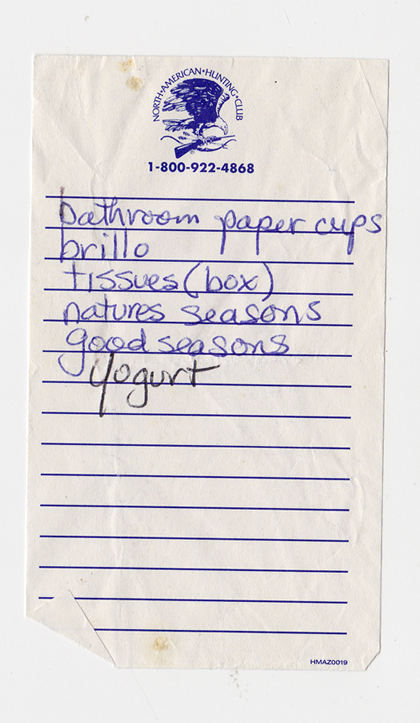 NORTH•AMERICAN•HUNTING•CLUB
1-800-922-4868
bathroom paper cups
brillo
tissues (box)
natures seasons
good seasons
yogurt
HMAZ0019